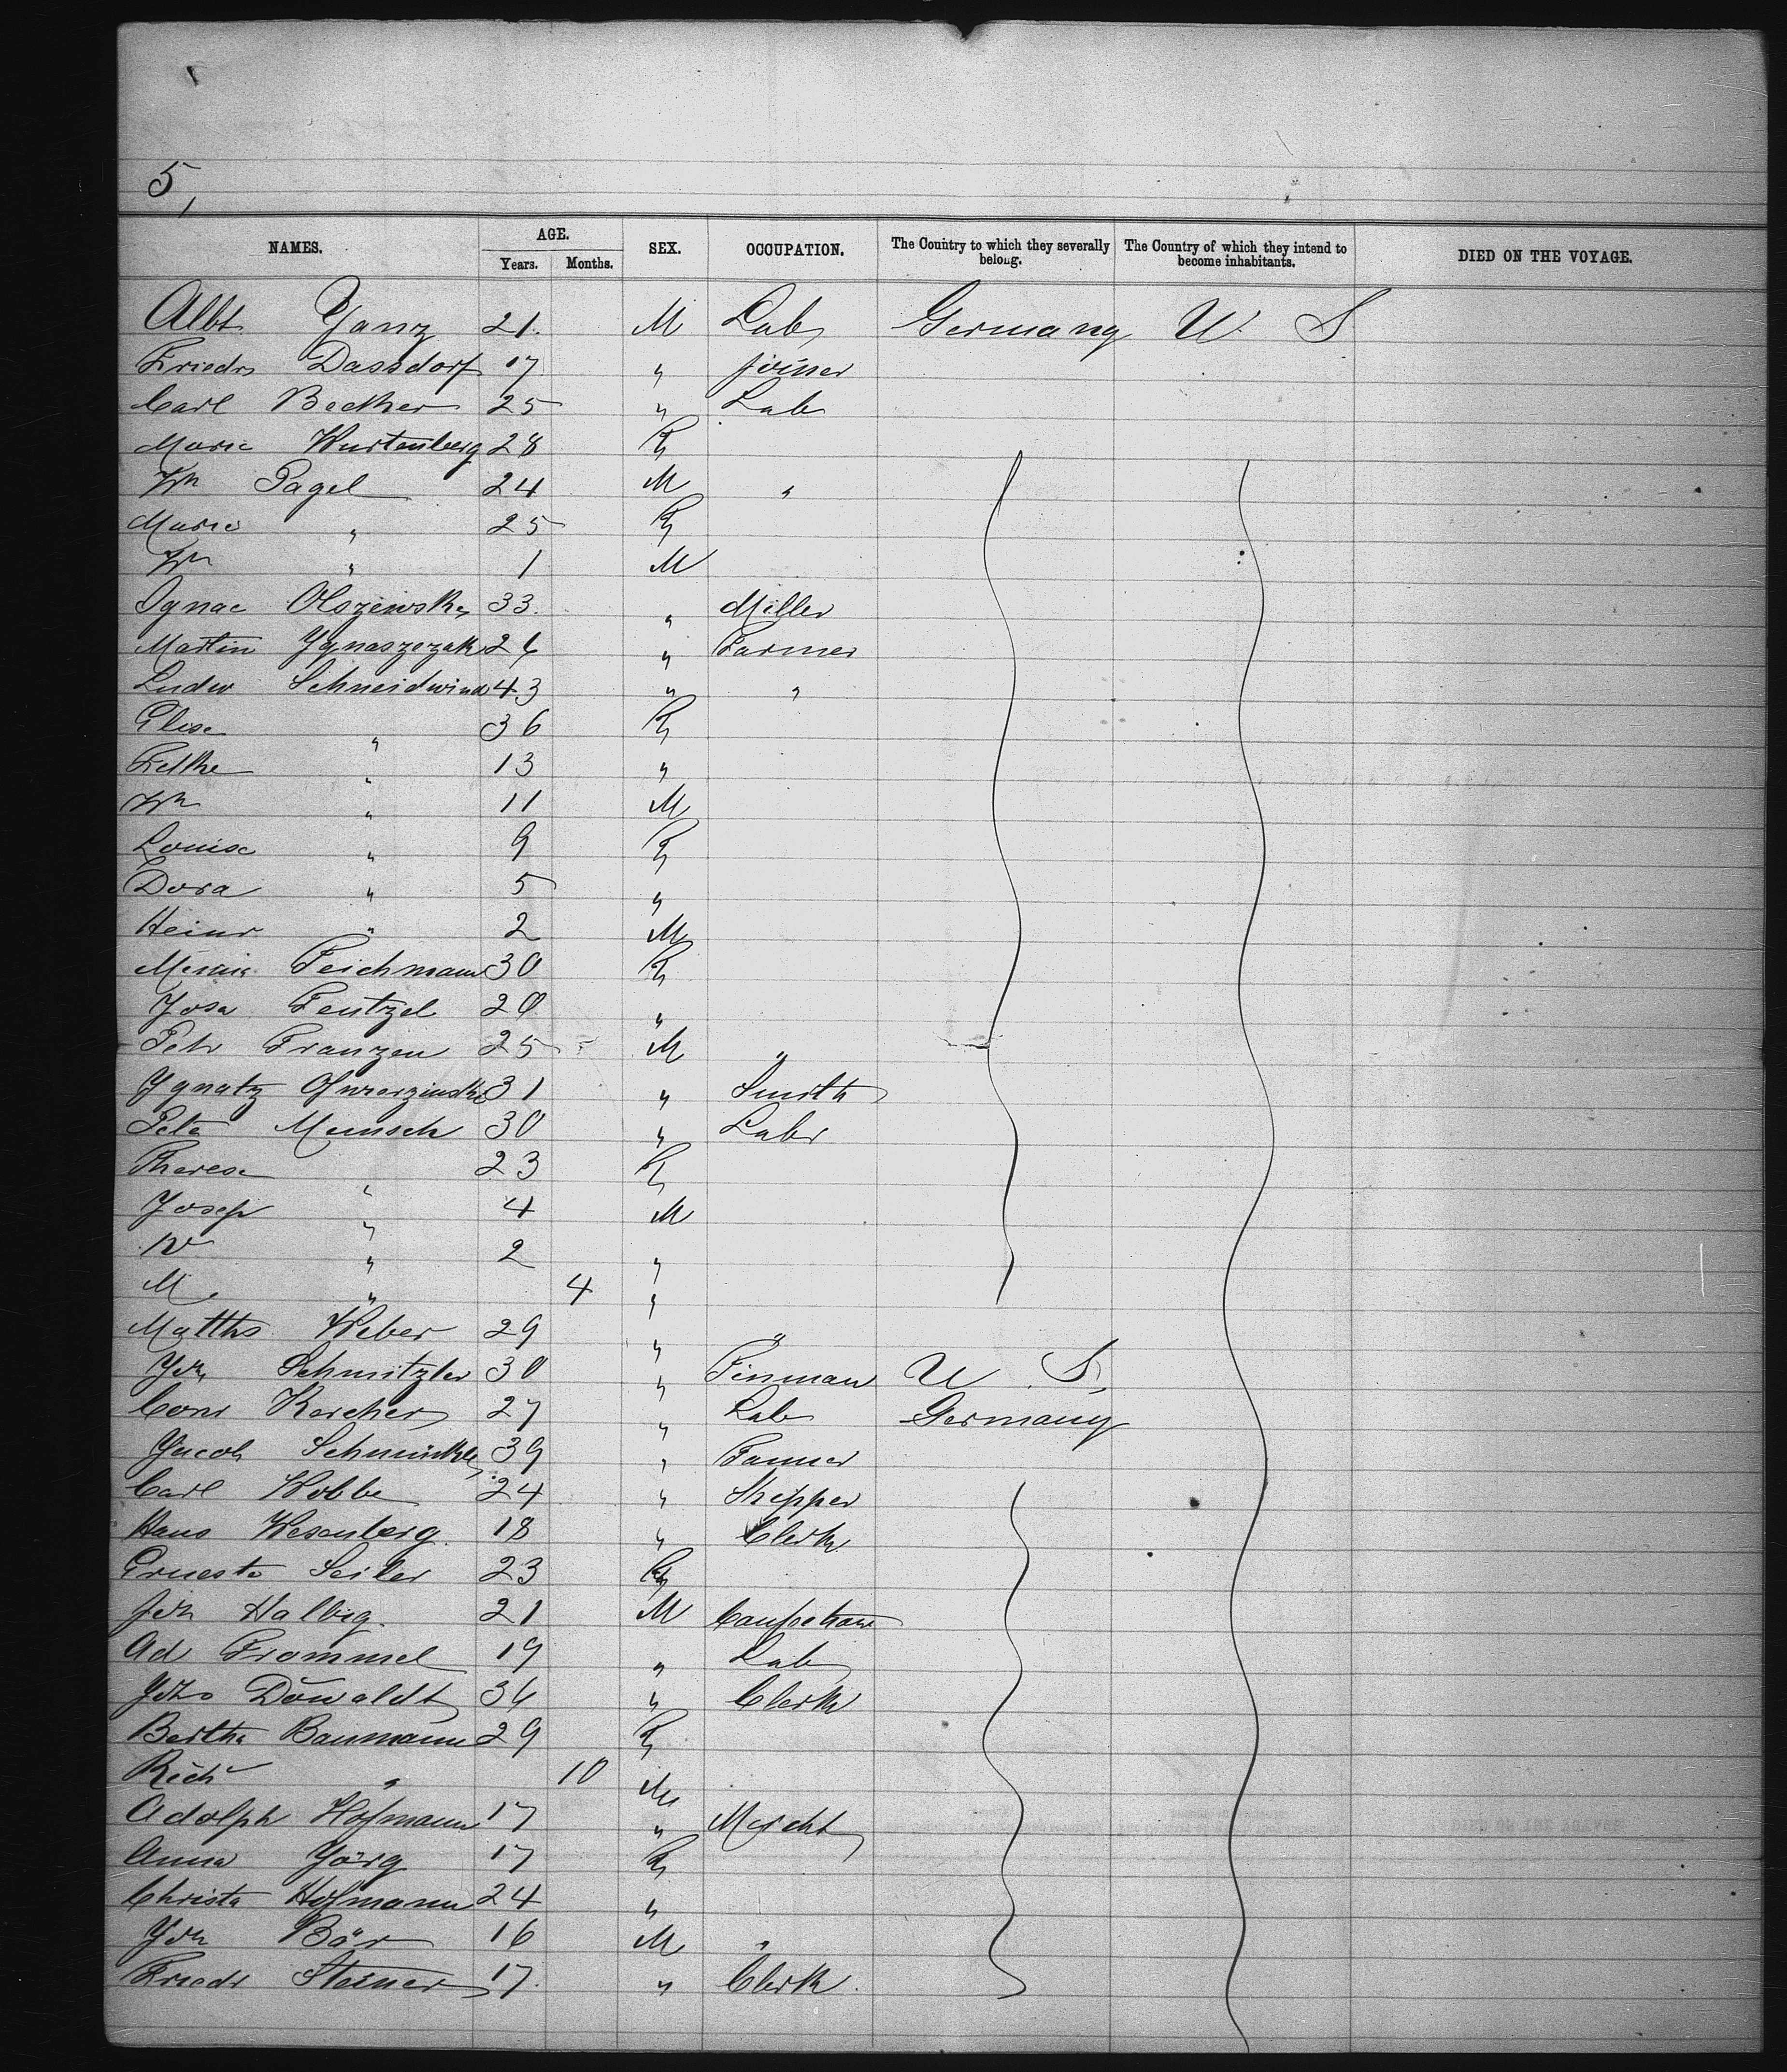 5,
NAMES. AGE. Years. Months. SEX. OCCUPATION. The Country to which they severally belong. The Country of which they intend to become inhabitants. DIED ON THE VOYAGE.
Albt Janz 21. M Lab Germany U S
Friedr Dassdorf 17 " joiner
Carl Becker 25 " Lab
Marie Wurtenberg 28 F
Wm Pagel 24 M "
Marie " 25 F
Wm " 1 M
Ignac Olszewsky 33. " Miller
Martin Ygnaszezak 26 " Farmer
Ludw Schneidwind 43 " "
Elise " 36 F
" 13 "
Wm " 11 M
Louise " 9 F
Dora " 5 "
Heinr " 2 M
Minna Teichmann 30 F
Josa Tentzel 20 "
Petr Franzen 25 M "
Ygnatz 31 " Smith
Pete Mensch 30 " Labr
Therese " 23 F
Josep " 4 M
N " 2 "
M. " 4 "
Matths Weber 29 " "
Joh Schnitzler 30 " U. S.
Conr Kercher 27 " Lab Germany
Jacob 39 " Tanner
Carl Wobbe 24 " Skipper
Hans Wesenberg. 18 " Clerk
Ernesta Seiler 23 F
Joh Halbig. 21 M
Ad Frommel 19 " Lab
Johs Döwaldt 36 " Clerk
Bertha Baumann 29 F
Rich " 10 M
Adolph Hofmann 17 " Mercht
Anna Jörg 17 F
Christa Hofmann 24 "
Joh Bär 16 M "
Friedr Steiner 17. " Clerk.